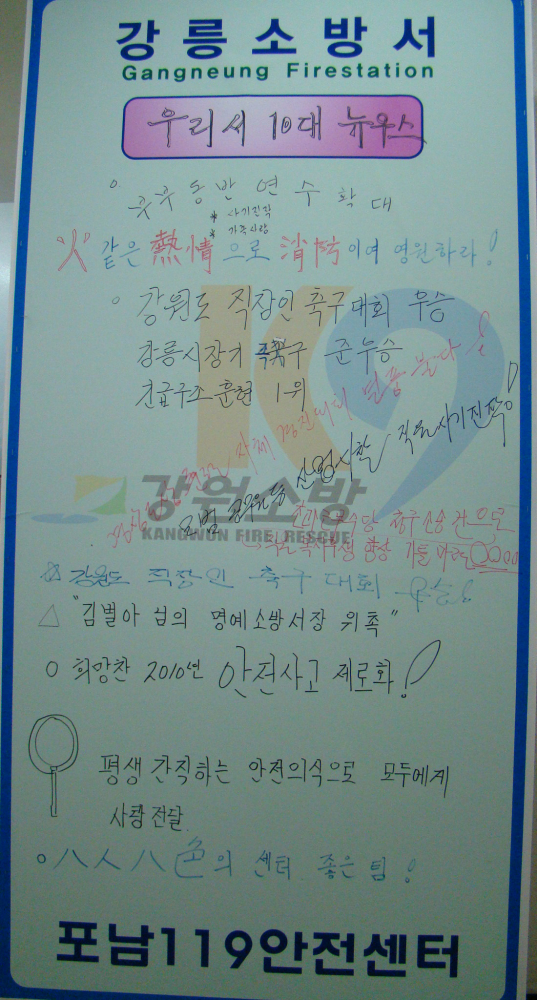 강릉소방서
Gangneung Firestation
우리서 10대 뉴우스
꾸꾸동반 연수 확대
* 사기진작
* 가족사랑
"人" 같은 熱情으로 消防이여 영원하라!
강원도 직장인 축구대회 우승
강릉시장기 족구 준우승
긴급구조훈련 1위
모범공무원 산업시찰 직원사기진작!
강원소방
KANGWON FIRE RESCUE
강원도 직장인 축구대회 우승!
△ "김별아 님의 명예소방서장 위촉"
○ 희망찬 2010년 안전사고 제로화!
평생 간직하는 안전의식으로 모두에게
사랑 전달
○ 八人八色의 센터 좋은 팀!
포남119안전센터